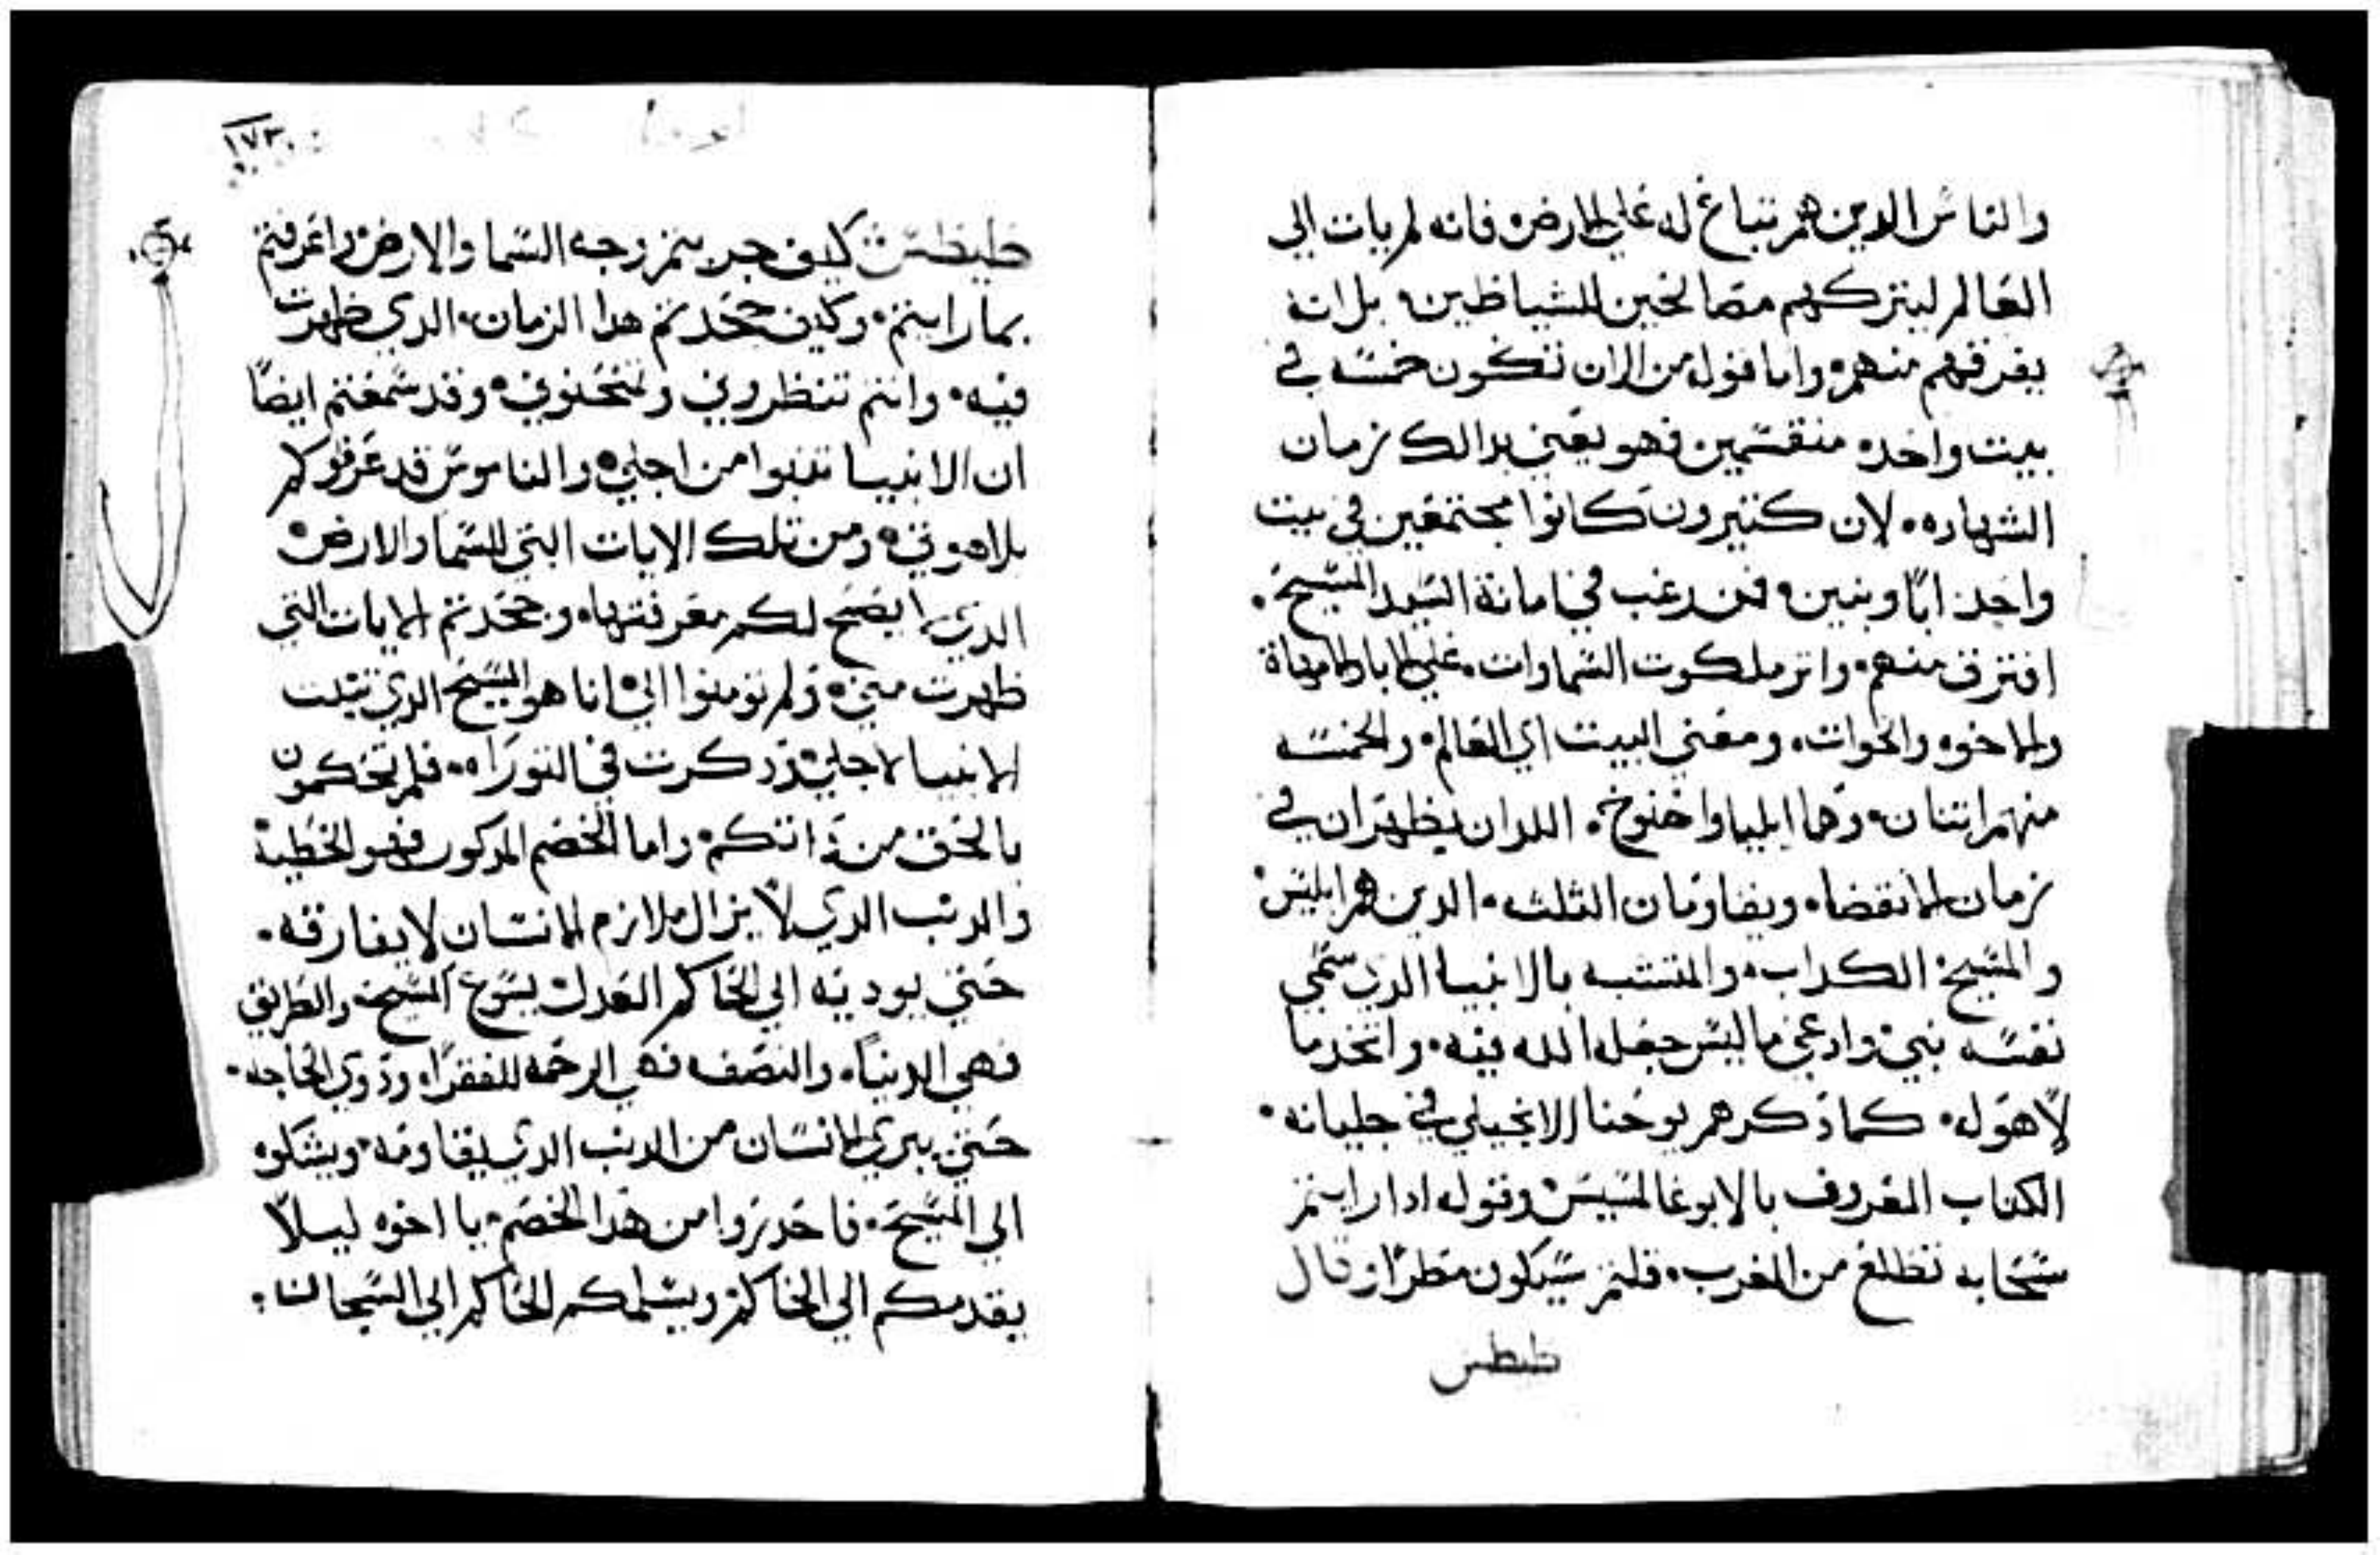 والناس الدين هم تباع له علي الارض فانه لم يات الي
العالم ليتركهم مصالحين للشياطين بل انه
يفرقهم منهم واما قوله من الان تكون خمسه في
بيت واحده منقسمين فهو يعني بدالك زمان
الشهاده لان كتيرون كانوا مجتمعين في بيت
واحد ابا وبنين فمن رغب في امانة السيد المسيح
افترق منهم واتر ملكوت السماوات علي الابا والامهاة
والاخوه والخوات ومعني البيت اي العالم والخمسه
منهم اتنان وهما ايليا واخنوخ اللدان يظهران في
زمان الانقضاء ويقاومان الثلثه الدين هم ابليس
والمسيح الكداب والمتشبه بالانبيا الدي سمي
نفسه نبي وادعي ما ليس جعله الله فيه واتخد ما
لا هو له كما دكرهم يوحنا الانجيلي في جليانه
الكتاب المعروف بالابوغالمسيس وقوله ادا رايتم
سحابه تطلع من الغرب قلتم سيكون مطرا وقال
طيطس
١٧٣
طيطس كيف جربتم وجه السما والارض واعرفتم
بما رايتم وكيف جحدتم هدا الزمان الدي ظهرت
فيه وانتم تنظروني وقد سمعتم ايضا
ان الانبيا تنبوا من اجلي والناموس قد عرفوكم
بلاهوتي ومن تلك الايات التي للسما والارض
الدي لا يصح لكم معرفتها وجحدتم الايات التي
ظهرت مني ولم تومنوا الي انا هو المسيح الدي تنبت
الانبيا لاجلي ودكرت في التوراه فلم تحكمون
بالحق من داتكم واما الخصم المدكور فهو الخطية
والدنب الدي لا يزال ملازم الانسان لا يفارقه
حتي يوديه الي الحاكم العدل يسوع المسيح والطريق
فهي الدنيا والنصف فهي الرحمه للفقرا ودوي الحاجه
حتي يبري الانسان من الدنب الدي يقاومه ويشكوه
الي المسيح فاحدروا من هدا الخصم يا اخوه ليلا
يقدمكم الي الحاكم ويسلمكم الحاكم الي السجان